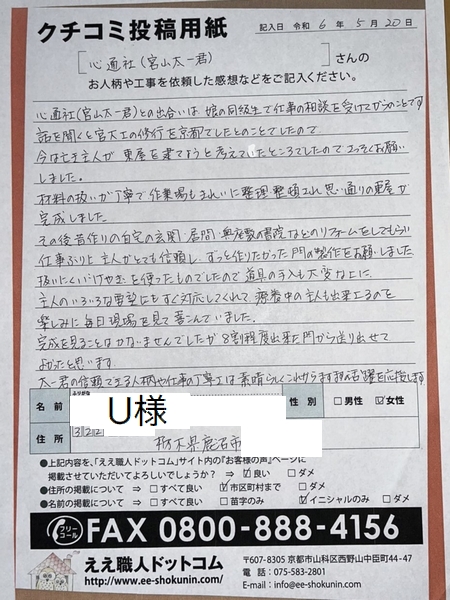 クチコミ投稿用紙
記入日 令和 6 年 5 月 20 日
心通社(宮山太一君) さんの
お人柄や工事を依頼した感想などをご記入ください。
心通社(宮山太一君)との出合いは 娘の同級生で仕事の相談を受けてからのことです
話を聞くと宮大工の修行を京都でしたとのことでしたので
今は亡き主人が 東屋を建てようと考えていたところでしたので さっそくお願い
しました。
材料の扱いが丁寧で作業場もきれいに整理整頓され 思い通りの東屋が
完成しました。
その後昔作りの自宅の玄関・居間・奥座敷の書院などのリフォームをしてもらい
仕事ぶりと 主人がとても信頼し ずっと作りたかった門の製作をお願いしました
扱いにくいけやきを使ったものでしたので 道具の手入も大変な上に、
主人のいろいろな要望にもすぐ対応してくれて 療養中の主人も出来上るのを
楽しみに毎日現場を見て喜こんでいました。
完成を見ることはかないませんでしたが 8割程度出来た門から送り出せて
よかったと思います
太一君の信頼できる人柄や仕事の丁寧さは素晴らしくこれからますます活躍を応援します
名 前
U様
性 別
□男性 ☑女性
住 所
栃木県鹿沼市
●上記内容を、「ええ職人ドットコム」サイト内の『お客様の声』ページに
掲載させていただいてよろしいでしょうか? ⇒ ☑良い □ダメ
●住所の掲載について ⇒ □すべて良い ☑市区町村まで □ダメ
●名前の掲載について ⇒ □すべて良い □苗字のみ ☑イニシャルのみ □ダメ
フリーコール FAX 0800-888-4156
ええ職人ドットコム
http://www.ee-shokunin.com/
〒607-8305 京都市山科区西野山中臣町44-47
電 話:075-583-2801
E-mail:info@ee-shokunin.com